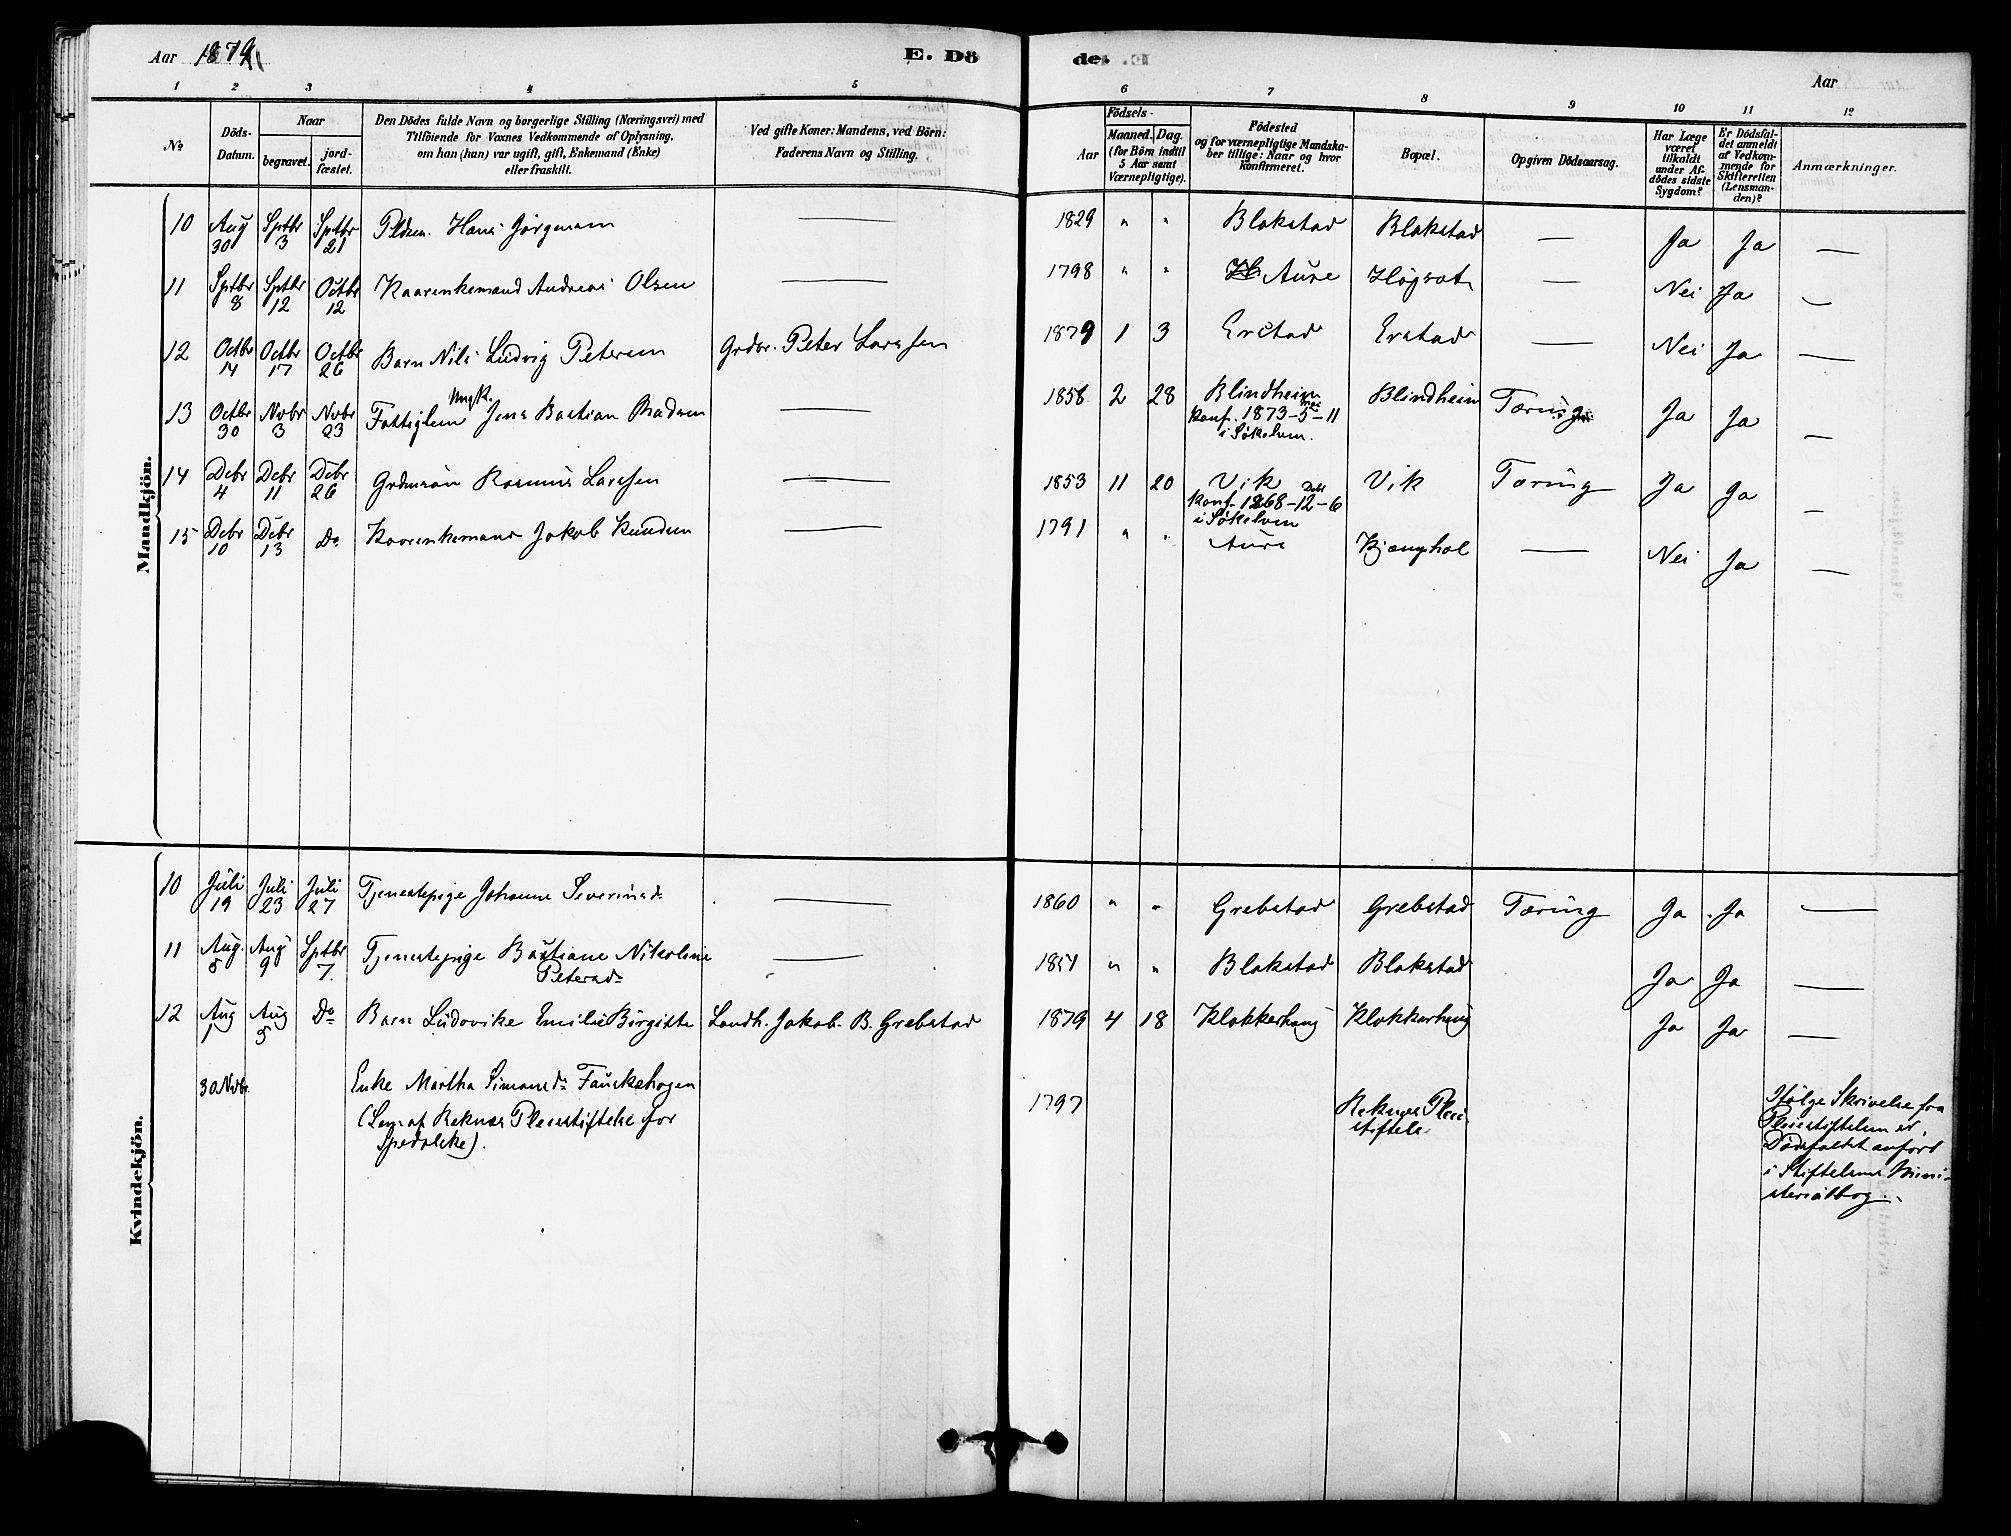 Aar 1879
E. Dö
de. E.
Aar
1 2 3 4 5 6 7 8 9 10 11 12
No
Döds-
Datum.
Naar
begravet.
jord-
fæstet.
Den Dödes fulde Navn og borgerlige Stilling (Næringsvei) med
Tilföiende for Voxnes Vedkommende af Oplysning,
om han (hun) var ugift, gift, Enkemand (Enke)
eller fraskilt.
Ved gifte Koner: Mandens, ved Börn:
Faderens Navn og Stilling.
Födsels-
Aar
Maaned. Dag.
(for Börn indtil
5 Aar samt
Værnepligtige).
Födested
og for værnepligtige Mandska-
ber tillige: Naar og hvor
Konfirmeret.
Bopæl.
Opgiven Dödsaarsag.
Har Læge
været
tilkaldt
under Af-
dödes sidste
Sygdom?
Er Dödsfal-
det anmeldt
af Vedkom-
mende for
Skifteretten
(Lensman-
den)?
Anmærkninger.
Mandkjön.
10 Aug 30 Sptbr 3 Sptbr 21 Pldsm. Hans Jörgensen — 1829 " " Blakstad Blakstad — Ja Ja —
11 Sptbr 8 Sptbr 12 Octbr 12 Kaarenkemand Andreas Olsen — 1798 " " Aure — Nei Ja —
12 Octbr 14 Octbr 17 Octbr 26 Barn Nils Ludvig Petersen Grdbr. Peter Larssen 1879 1 3 Erstad Erstad — Nei Ja —
13 Octbr 30 Nvbr 3 Nvbr 23 Fattiglem Ungk. Jens Bastian Madsen — 1858 2 28 Blindheim Blindheim Tæring Ja Ja —
Konf. 1873-5-11
Mai
i Sökelven.
14 Debr 4 Debr 11 Debr 26 Grdmsön Rasmus Larssen — 1853 11 20 Vik Vik Tæring Ja Ja —
Konf. 1868-12-6
i Sökelven
15 Debr 10 Debr 13 Do Kaarenkemand Jakob Knudsen — 1791 " " Aure — Nei Ja —
Kvindekjön.
10 Juli 19 Juli 23 Juli 27 Tjenestepige Johanne Severinsdr — 1860 " " Grebstad Grebstad Tæring Ja Ja —
11 Aug. 5 Aug 9 Sptbr 7. Tjenestepige Bastiane Nikoline — 1851 " " Blakstad Blakstad Ja Ja —
Petersdr
12 Aug 1 Aug 5 Do Barn Ludovike Emilie Birgitte Landh. Jakob B. Grebstad 1879 4 18 Klokkerhaug Klokkerhaug Ja Ja —
30 Nvbr. Enke Martha Simonsdr Fauskehagen
(Lem af Reknæs Pleiestiftelse for
Spedalske).
1797
Reknæs Pleie
stiftelse
Ifölge Skrivelse fra
Pleiestiftelsen er
Dödsfaldet anfört
i Stiftelsens Mini-
sterialbog.